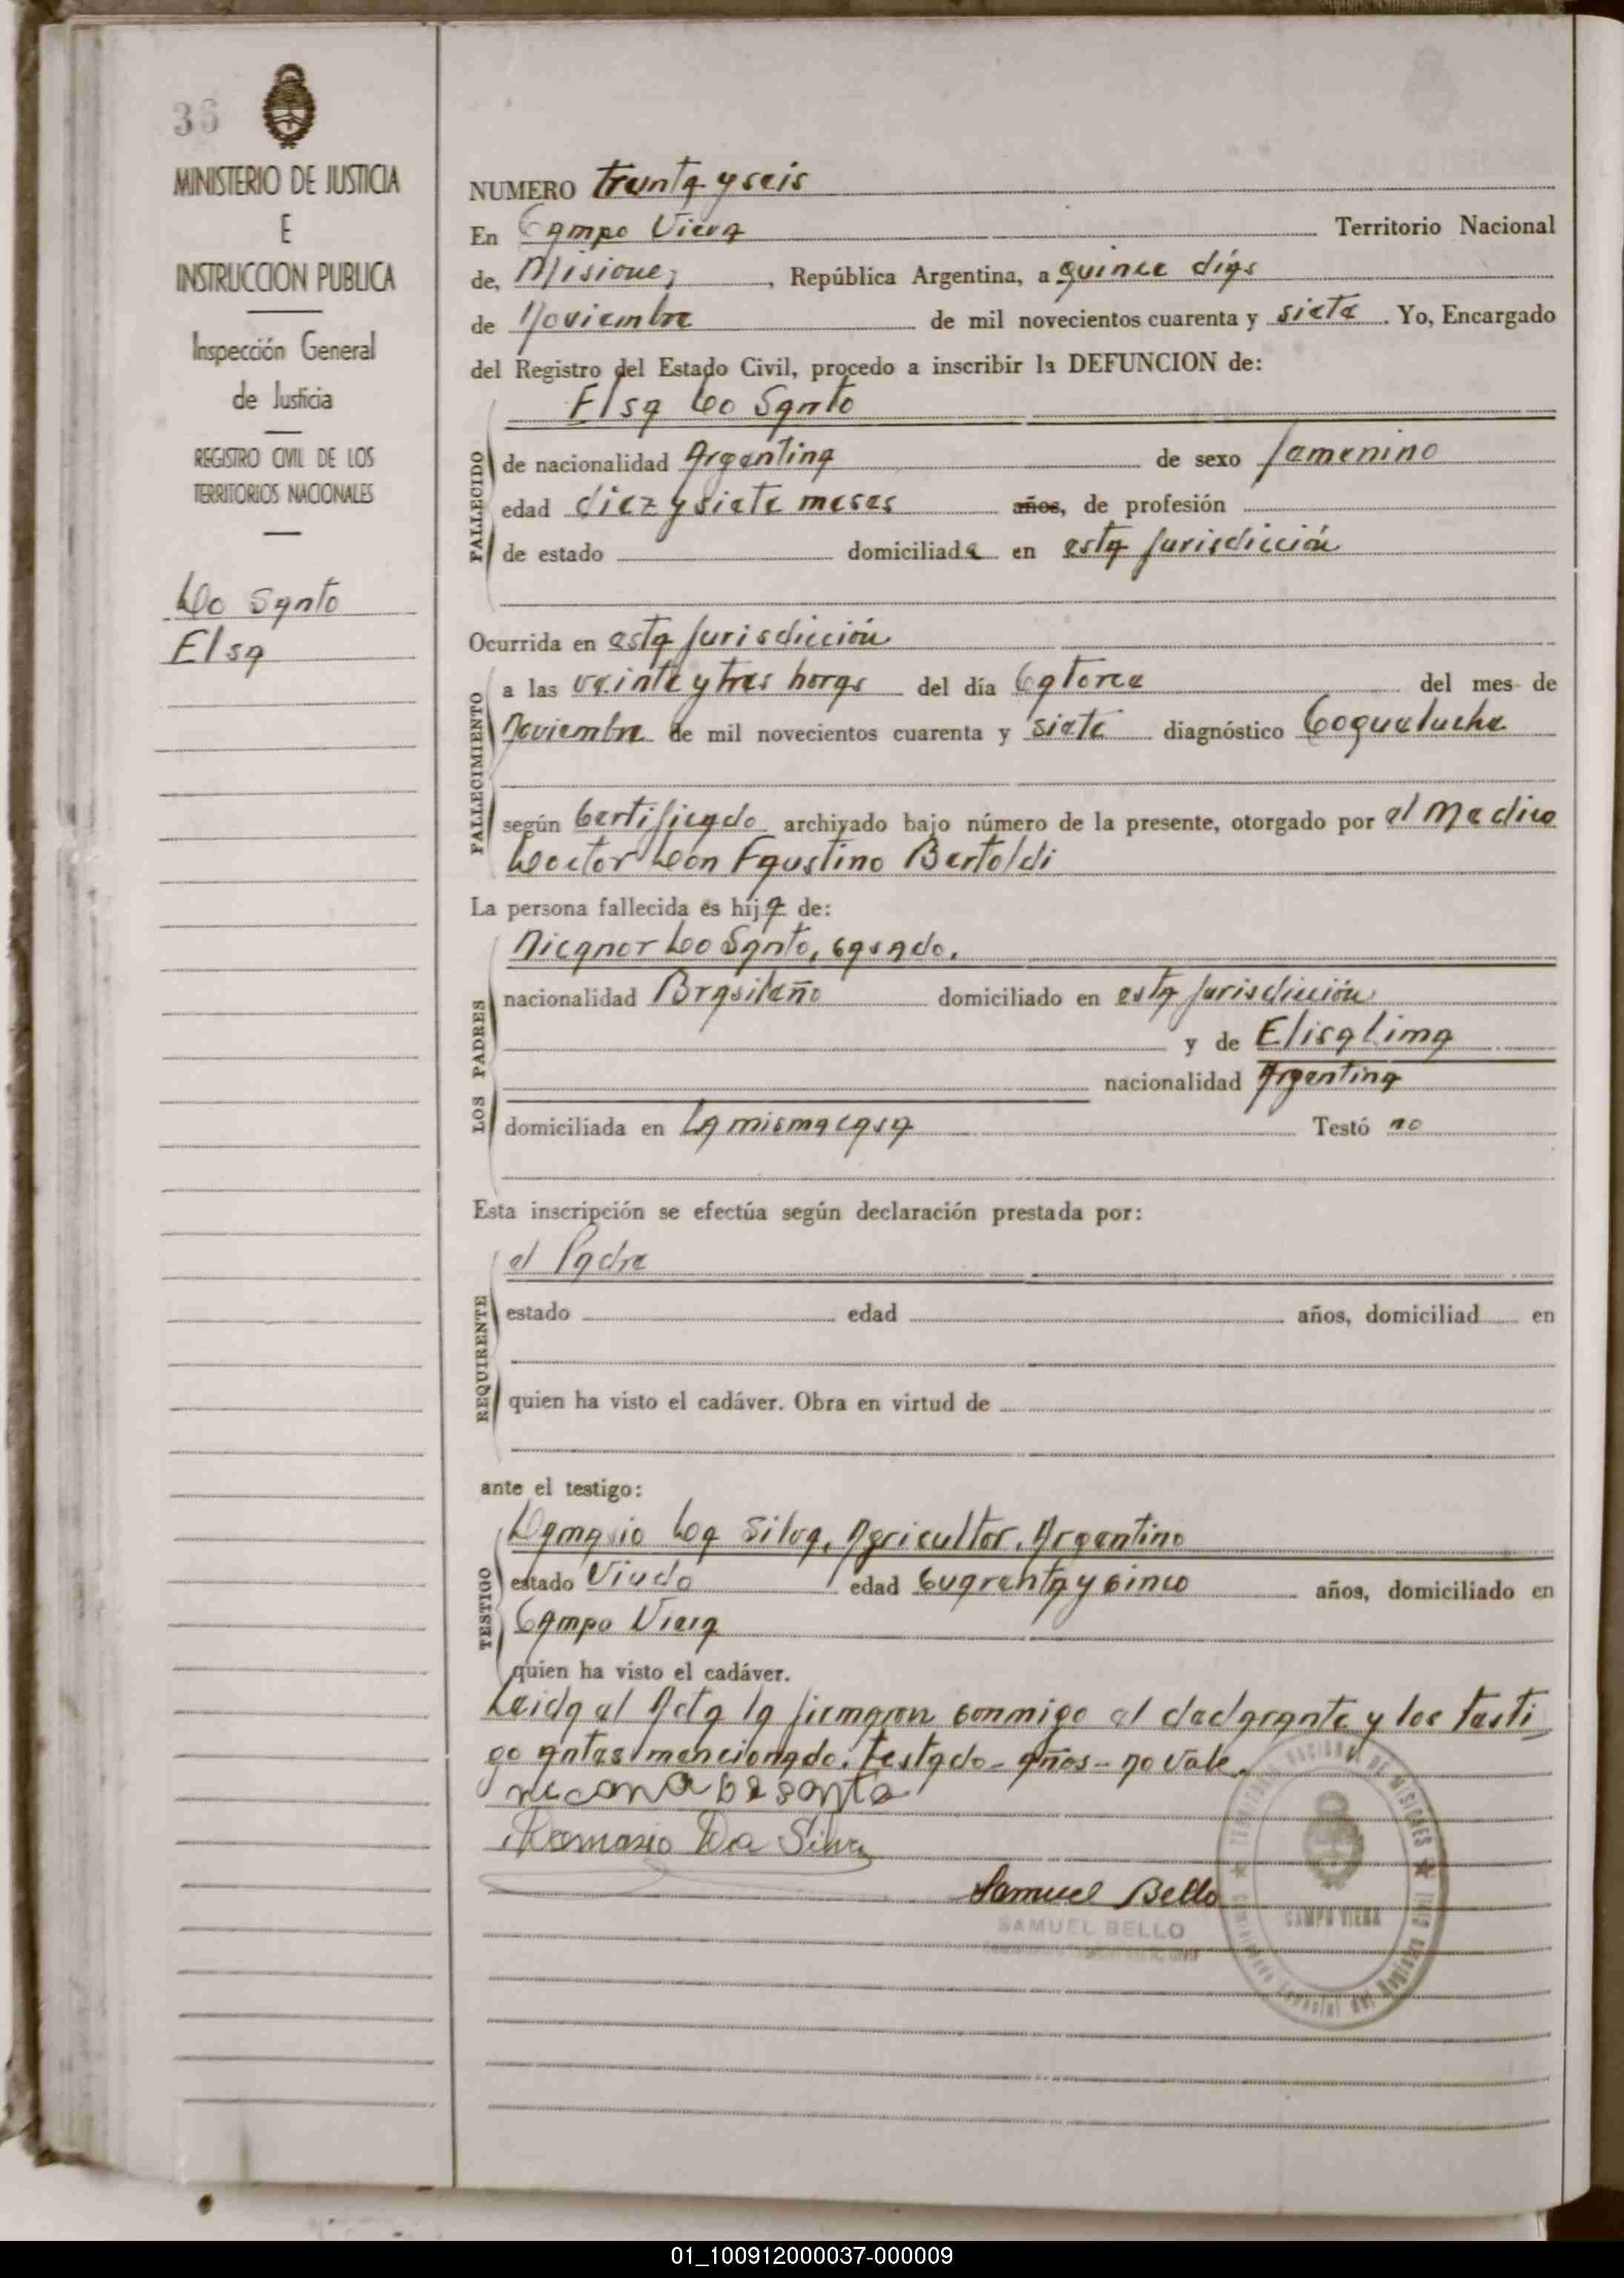 36
MINISTERIO DE JUSTICIA
E
INSTRUCCION PUBLICA
Inspección General
de Justicia
REGISTRO CIVIL DE LOS
TERRITORIOS NACIONALES
Do Santo
Elsa
NUMERO treinta y seis
En Campo Viera Territorio Nacional
de, Misiones, República Argentina, a quince días
de Noviembre de mil novecientos cuarenta y siete. Yo, Encargado
del Registro del Estado Civil, procedo a inscribir la DEFUNCION de:
Elsa Do Santo
FALLECIDO
de nacionalidad Argentina de sexo femenino
edad diez y siete meses años, de profesión
de estado domiciliada en esta jurisdicción
Ocurrida en esta jurisdicción
FALLECIMIENTO
a las veinte y tres horas del día Catorce del mes de
Noviembre de mil novecientos cuarenta y siete diagnóstico Coqueluche
según Certificado archivado bajo número de la presente, otorgado por el Medico
Doctor Don Faustino Bertoldi
La persona fallecida es hija de:
LOS PADRES
Nicanor Do Santo, casado.
nacionalidad Brasileño domiciliado en esta jurisdicción
y de Elisa Lima
nacionalidad Argentina
domiciliada en La misma casa Testó no
Esta inscripción se efectúa según declaración prestada por:
REQUIRENTE
el Padre
estado edad años, domiciliad en
quien ha visto el cadáver. Obra en virtud de
ante el testigo:
TESTIGO
Damasio Da Silva, Agricultor, Argentino
estado Viudo edad Cuarenta y cinco años, domiciliado en
Campo Viera
quien ha visto el cadáver.
Leida el Acta la firmaron conmigo el declarante y los testi
go antes mencionado: testado - años - no vale.
Damasio Da Silva
Samuel Bello
SAMUEL BELLO
TERRITORIO NACIONAL DE MISIONES
CAMPO VIERA
01_100912000037-000009